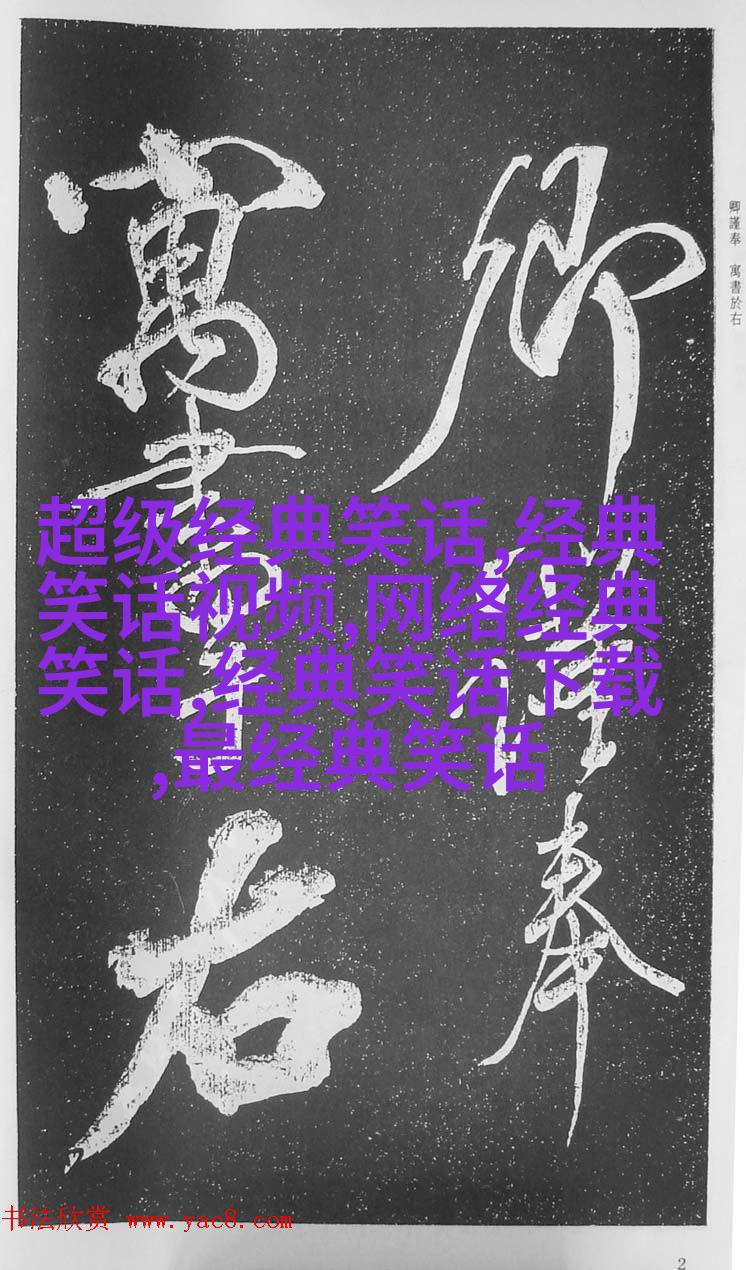 卿謹奉
寓書於右
卿謹奉　寓書於右
超级经典笑话,经典
笑话视频,网络经典
笑话,经典笑话下载
,最经典笑话
书法欣赏 www.yac8.com
2